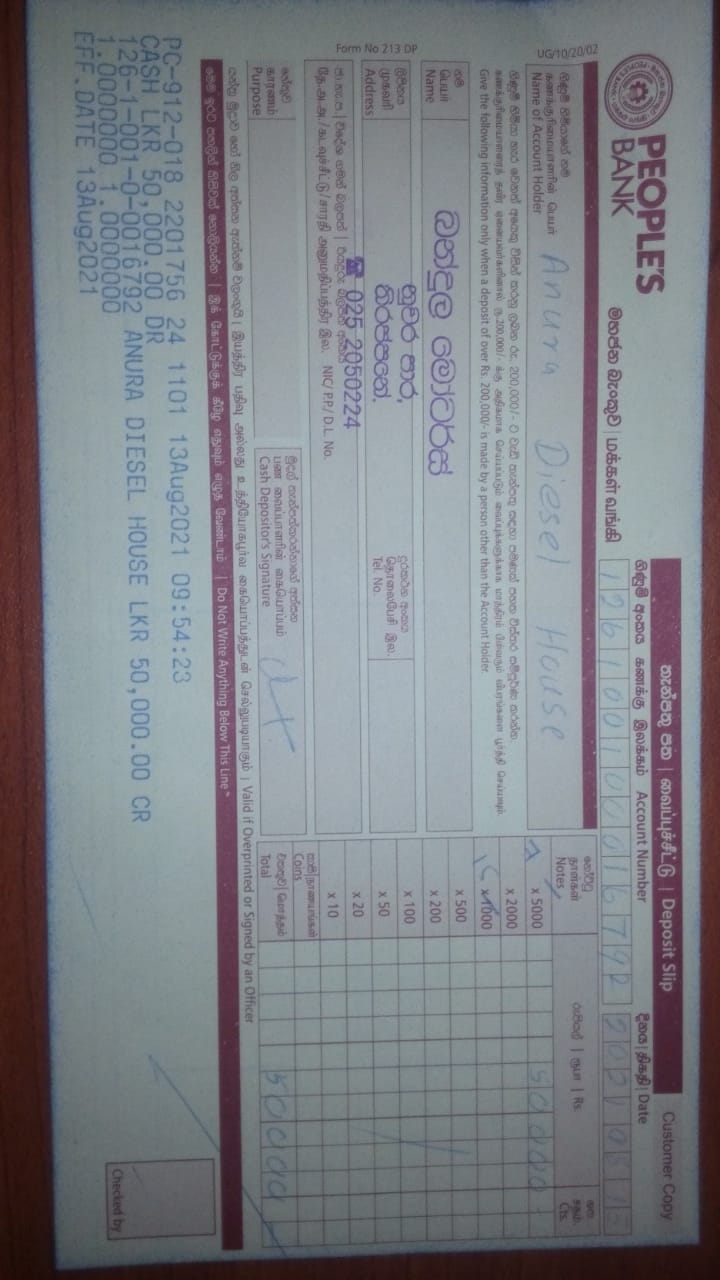 PEOPLE'S
BANK
මහජන බැංකුව | மக்கள் வங்கி
තැන්පතු පත | வைப்புச்சீட்டு | Deposit Slip
Customer Copy
ගිණුම් අංකය கணக்கு இலக்கம் Account Number
දිනය | திகதி | Date
126100100016792
UG/10/20/02
ගිණුම් හිමියාගේ නම
கணக்குரிமையாளரின் பெயர்
Name of Account Holder
Anura Diesel House
Give the following information only when a deposit of over Rs. 200,000/- is made by a person other than the Account Holder.
නම
பெயர்
Name
බන්දුල මෝටර්ස්
ලිපිනය
முகவரி
Address
නුවර පාර,
තිරප්පනේ.
☎ 025 2050224
දුරකථන අංකය
தொலைபேசி இல.
Tel. No.
NIC/ P.P./ D.L. No.
හේතුව
காரணம்
Purpose
මුදල් තැන්පත්කරන්නාගේ අත්සන
பண வைப்பாளரின் கையொப்பம்
Cash Depositor's Signature
නෝට්ටු
தாள்கள்
Notes
රුපියල් | ரூபா | Rs.
ශත
சதம்
Cts.
x 5000
50000
x 2000
x 1000
x 500
x 200
x 100
x 50
x 20
x 10
Coins
Total
50000
Valid if Overprinted or Signed by an Officer
Do Not Write Anything Below This Line"
Form No 213 DP
PC-912-018 2201756 24 1101 13Aug2021 09:54:23
CASH LKR 50,000.00 DR
126-1-001-0-0016792 ANURA DIESEL HOUSE LKR 50,000.00 CR
1.0000000 1.0000000
EFF.DATE 13Aug2021
Checked by